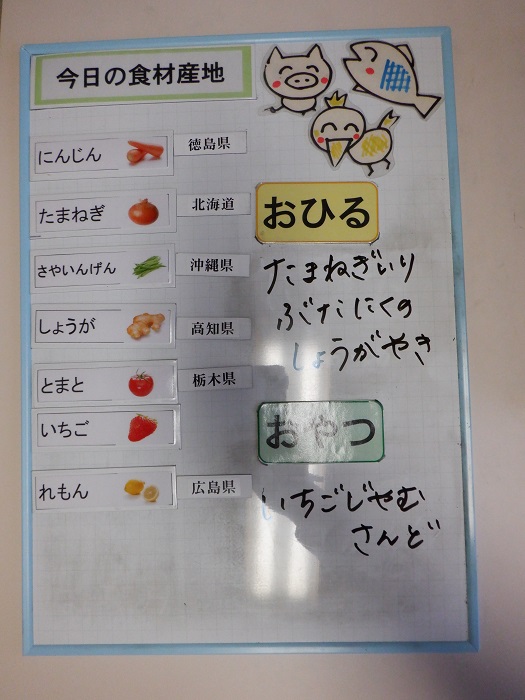 今日の食材産地
にんじん 徳島県
たまねぎ 北海道
さやいんげん 沖縄県
しょうが 高知県
とまと 栃木県
いちご
れもん 広島県
おひる
たまねぎいり
ぶたにくの
しょうがやき
おやつ
いちごじゃむ
さんど